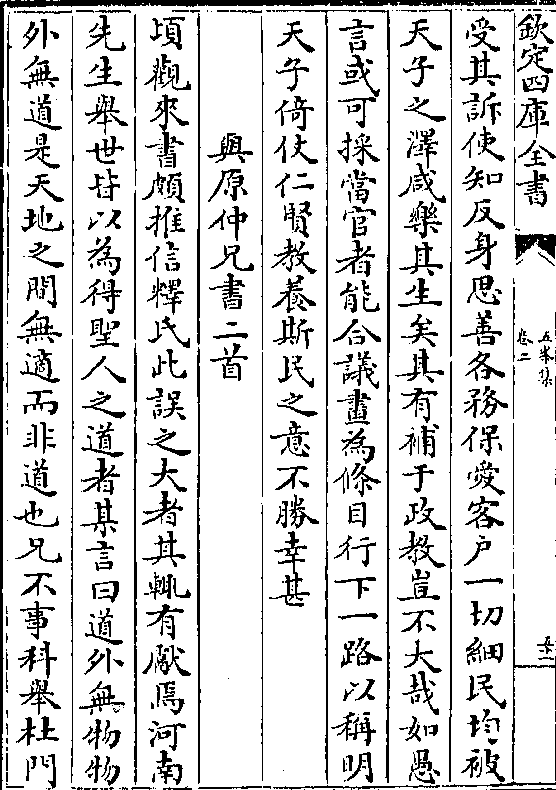 欽定四庫全書
五峯集
卷二
受其訴使知反身思善各務保愛客戶一切細民均被
天子之澤咸樂其生矣其有補于政教豈不大哉如愚
言或可採當官者能合議畫為條目行下一路以稱明
天子倚仗仁賢教養斯民之意不勝幸甚
與原仲兄書二首
頃觀來書頗推信釋氏此誤之大者其輒有獻焉河南
先生舉世皆以為得聖人之道者其言曰道外無物物
外無道是天地之間無適而非道也兄不事科舉杜門